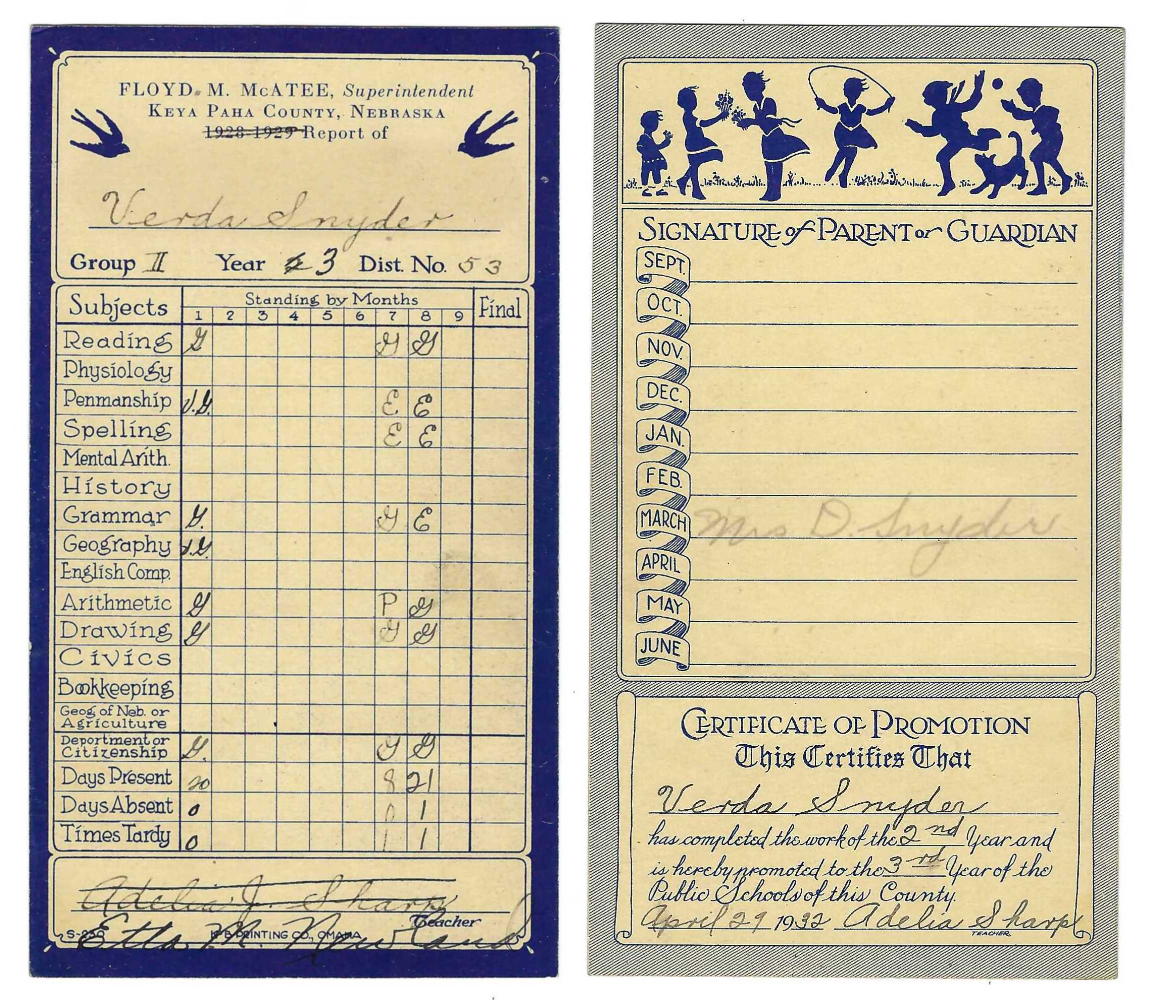 FLOYD M. McATEE, Superintendent
KEYA PAHA COUNTY, NEBRASKA
1928-1929 Report of
Verda Snyder
Group II Year 3 Dist. No. 53
Subjects Standing by Months Final
1 2 3 4 5 6 7 8 9
Reading G G G
Physiology
Penmanship V.G. E E
Spelling E E
Mental Arith.
History
Grammar G. G E
Geography V.G.
English Comp.
Arithmetic G P G
Drawing G G G
Civics
Bookkeeping
Geog. of Neb. or
Agriculture
Deportment or
Citizenship G. G G
Days Present 20 8 21
Days Absent 0 0 1
Times Tardy 0 1 1
Adelia J. Sharp
Teacher
S-250 PRINTING CO., OMAHA
Etta M.
SIGNATURE of PARENT or GUARDIAN
SEPT.
OCT.
NOV.
DEC.
JAN.
FEB.
MARCH Mrs D. Snyder
APRIL
MAY
JUNE
CERTIFICATE OF PROMOTION
This Certifies That
Verda Snyder
has completed the work of the 2nd Year and
is hereby promoted to the 3rd Year of the
Public Schools of this County.
April 29 1932 Adelia Sharp
TEACHER